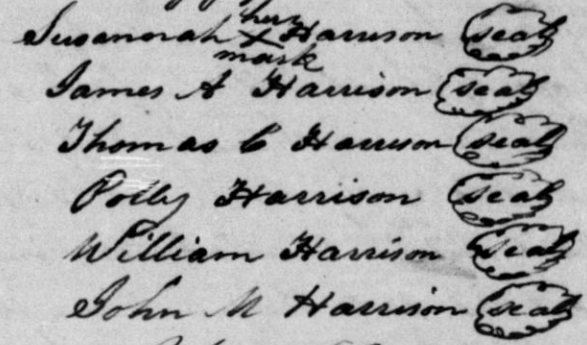 her
Susannah X Harrison seal
mark
James A Harrison seal
Thomas C Harrison seal
Polly Harrison seal
William Harrison seal
John M Harrison seal